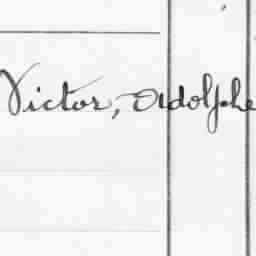 Victor, Adolphe